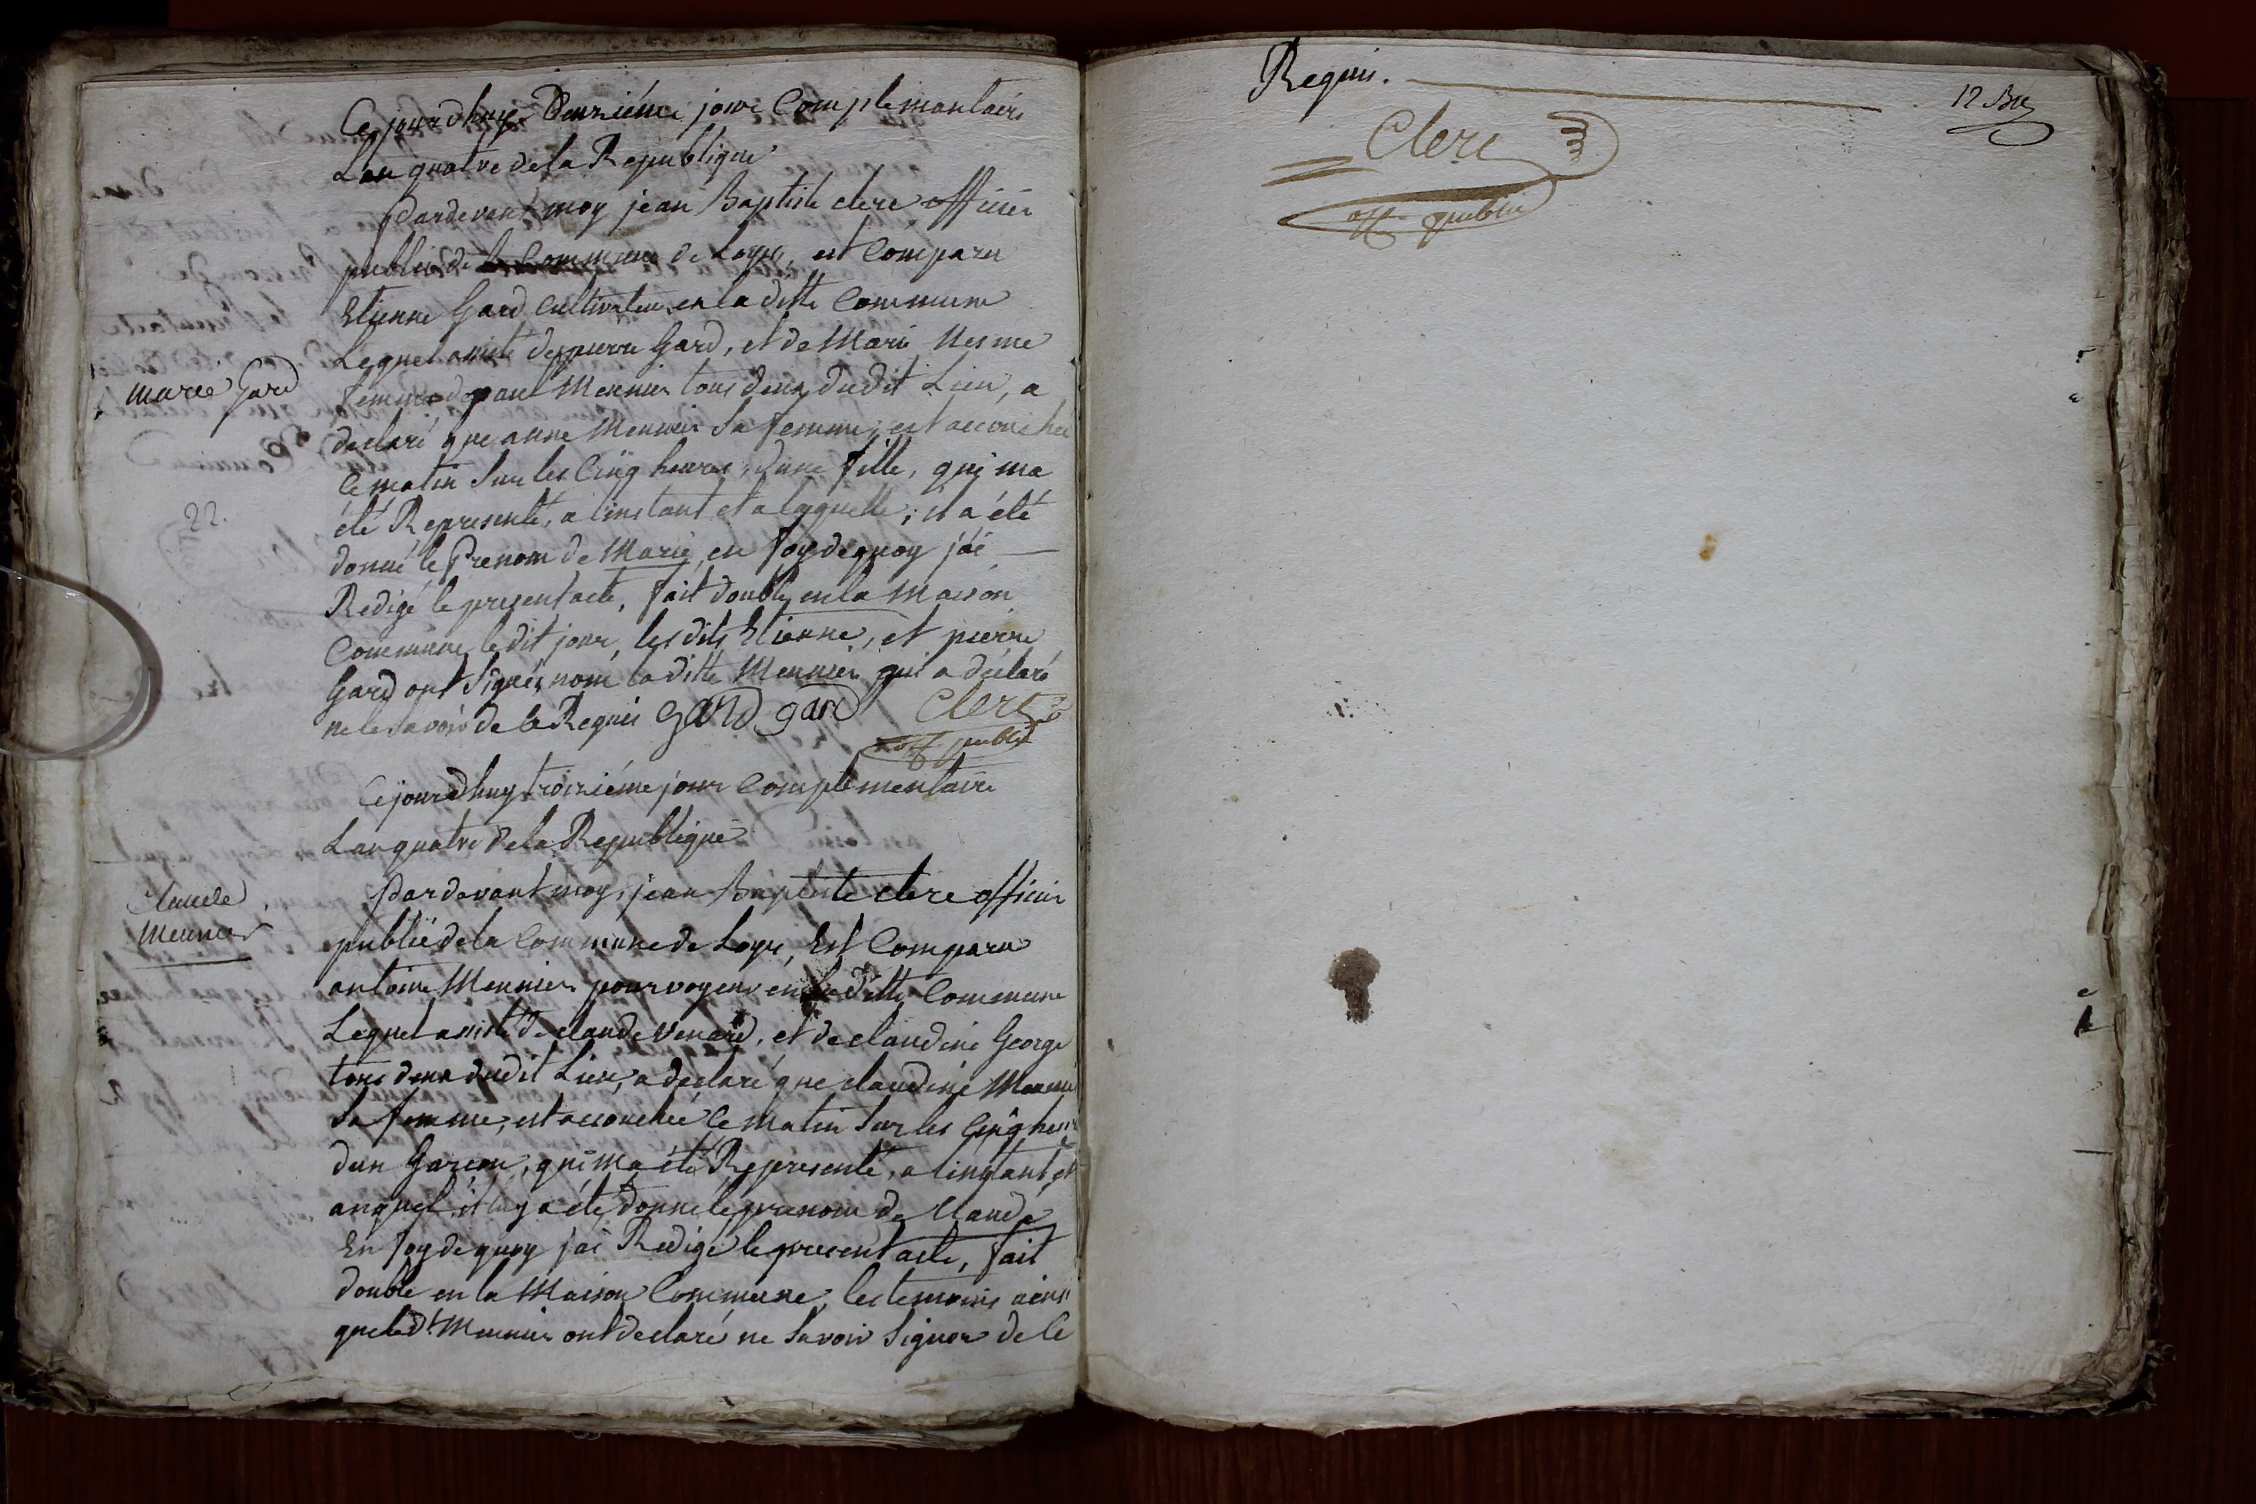 Cejourdhuy Deuxiéme jour Complemantaire
Lan quatre de la Republique
Pardevant moy jean Baptiste clerc officier
public de la Commune de Loyes, est Comparu
Etienne Gard Cultivateur en la ditte Commune
Lequel assisté de pierre Gard, et de Marie Nesme
marie Gard
femme de paul Meunier tous deux dudit Lieu, a
declaré que anne Meunier sa femme, est accouchee
Ce matin sur les Cinq heures, dune fille, qui ma
été Representé, a linstant et a laquelle, il a été
22.
donné le Prenom de Marie, en foy de quoy j'ai
Redigé le present acte, fait double en la Maison
Commune le dit jour, les dits Etienne, et pierre
Gard ont Signés, non la ditte Meunier qui a déclaré
ne le savoir de ce Requis GARD gard Clerc
off public
Cejourdhuy troiziéme jour Complementaire
Lan quatre de la Republique
Pardevant moy, jean Baptiste clerc officier
Claude
Meunier
public de la Commune de Loyes, Est Comparu
antoine Meunier pourvoyeur en la ditte Commune
Lequel assisté de claude Venard, et de claudine George
tous deux dudit Lieu, a declaré que claudine
Sa femme, est accouchée Ce matin Sur les Cinq heur
dun Garcon, qui ma été Representé, a linstant, et
auquel, il y a été donné le prenom de Claude
En foy de quoy jai Redigé le present acte, fait
double en la Maison Commune, les temoins ainsi
que led.t Meunier ont declaré ne Savoir Signer de Ce
Requis.
12 Bre
Clerc
off public